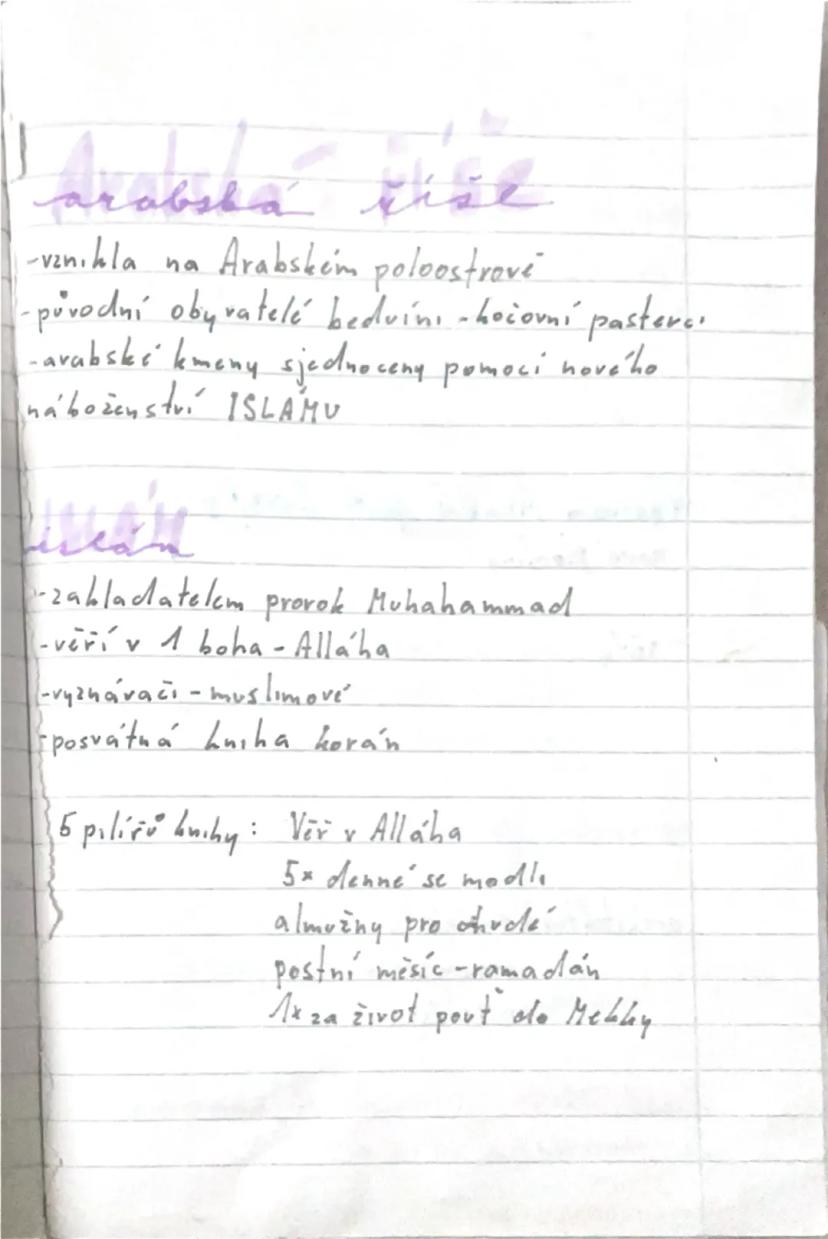 arabská říše
-vznikla na Arabském poloostrově
-původní obyvatelé beduíni - kočovní pastevci
-arabské kmeny sjednoceny pomocí nového
náboženství ISLÁMU
islám
-zakladatelem prorok Muhahammad
-věří v 1 boha - Alláha
-vyznávači - muslimové
-posvátná kniha korán
5 pilířů knihy: Věř v Alláha
5x denně se modli
almužny pro chudé
postní měsíc - ramadán
1x za život pouť do Mekky